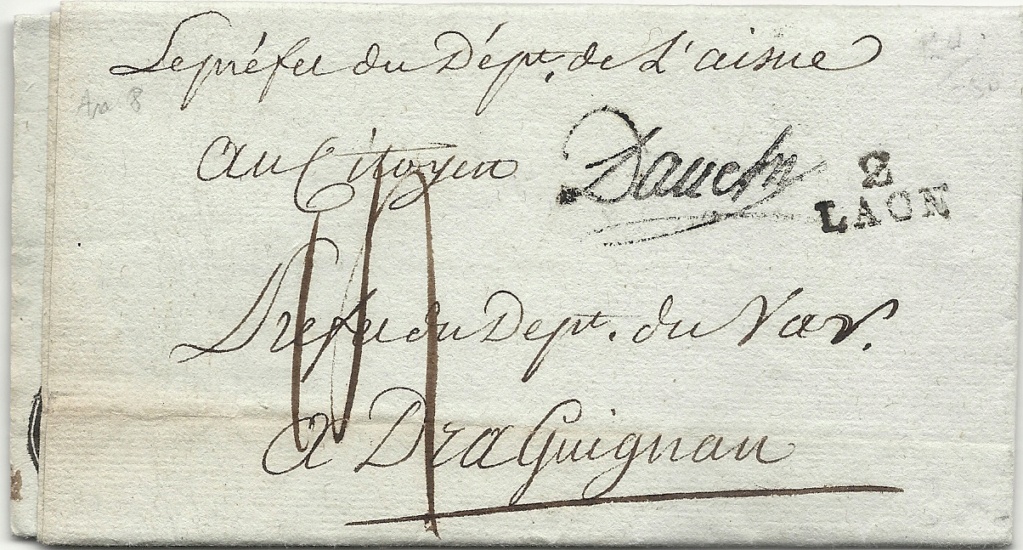 Le préfet du Dépt. de L'aisne
au Citoyen
Dauchy
2
LAON
Prefet du Dept. du Var.
a DraGuignan